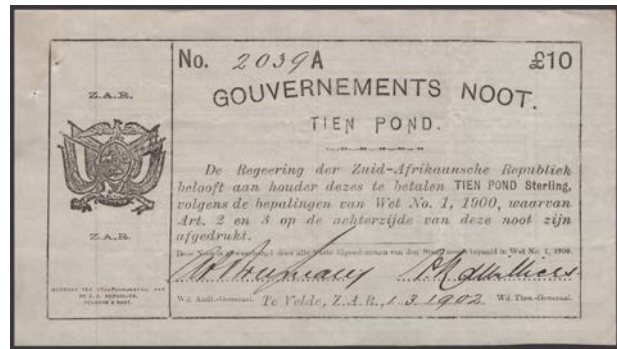 No. 2039A £10
GOUVERNEMENTS NOOT.
TIEN POND.
De Regeering der Zuid-Afrikaansche Republiek
belooft aan houder dezes te betalen TIEN POND Sterling,
volgens de bepalingen van Wet No. 1, 1900, waarvan
Art. 2 en 3 op de achterzijde van deze noot zijn
afgedrukt.
Deze Noten gewaarborgd door alle Vaste Eigendommen van den Staat zooals bepaald in Wet No. 1, 1900.
Wd. Audt.-Generaal. Te Velde, Z.A.R., 1.3.1902 Wd. Thes.-Generaal.
Z.A.R.
Z.A.R.